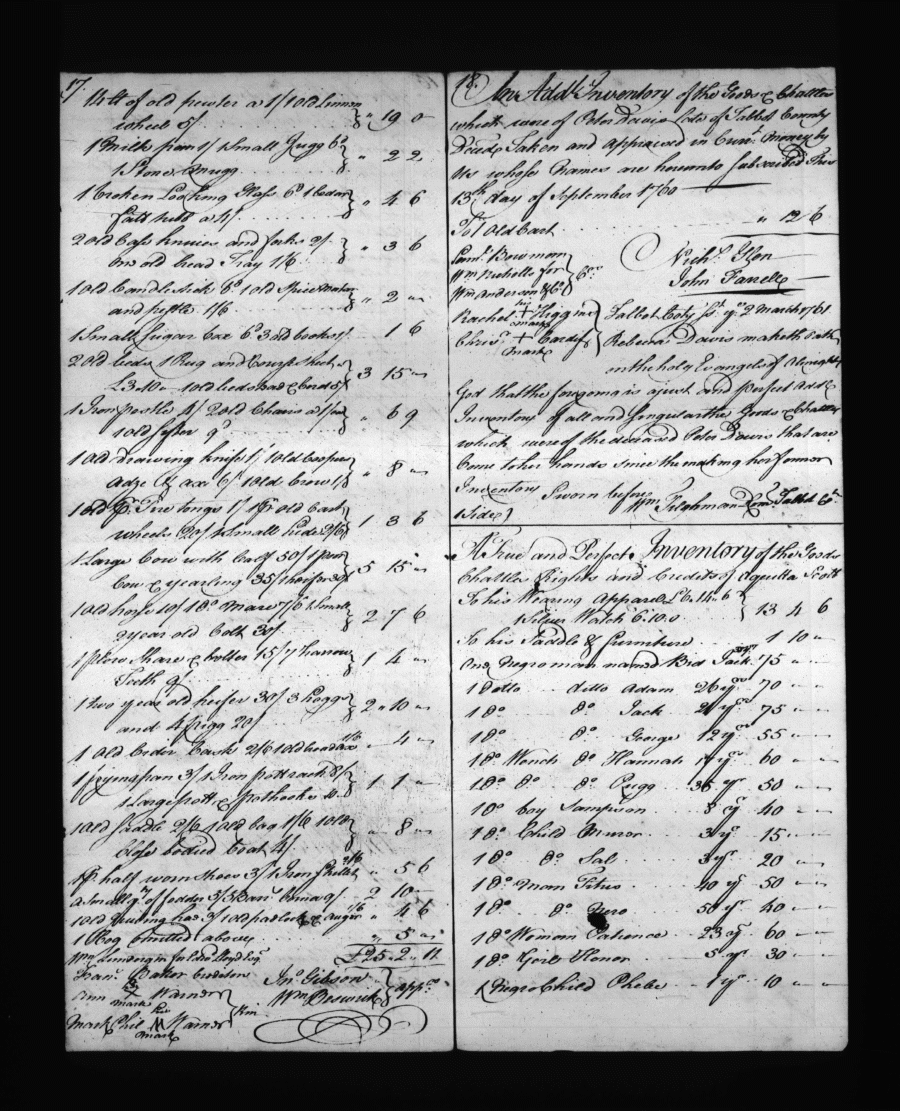 17.
14 lb of old pewter a 1/ 1 old linnen
wheel 5/ " 19 0
1 Milk pan 1/ 1 Small Jugg 6d
1 Stone mugg " 2 2
1 broken Looking Glass 6d 1 Cedar
Salt tubb a 4/ " 4 6
2 old Case knives and forks 2/
one old bread Tray 1/6 " 3 6
1 old Candlestick 6d 1 old Spice mortar
and pestle 1/6 " 2 "
1 Small Sugar box 6d 3 old books 1/ 1 6
2 old beds 1 Rug and Sheet
£3.10 1 old bedstead & Cord 5/ 3 15 "
1 Iron pestle 4/ 2 old Chairs
1 old sifter 9d " 6 9
1 old drawing knife 1/ 1 old Coopers
adze & axe 6/ 1 old Crow 1/ " 8 "
1 old pr Fire tongs 1/ 1 pr old Cart
wheels 20/ 1 Small hide 2/6 1 3 6
1 Large Cow with Calf 50/ 1
Cow & yearling 35/ 1 heifer 30/ 5 15 "
1 old horse 10/ 1 do Mare 7/6 1 Small
2 year old Colt 30/ 2 7 6
1 plow Share & Colter 15/ 7 harrow
Teeth 9/ 1 4 "
1 two year old heifer 30/ 3 hoggs
and 4 piggs 20/ 2 " 10 "
1 Old Cyder Cask 2/6 1 old broad ax 1/6 " 4 "
1 frying pan 3/ 1 Iron pott rack 8/
1 Large pott & pothooks 10/ 1 1 "
1 Old Saddle 2/6 1 Old bag 1/6 1 Old
Close bodied Coat 4/ " 8 "
1 pr half worn Shoes 3/ 1 Iron Skillet 2/6 " 5 6
a Small qty of fodder 3/ 2 10
1 old 3/ 1 old padlock & auger 1/6 " 4 6
1 Hog omitted above " 5 "
Wm for Lloyd Esqr £25 .. 2 .. 11
Fran. Baker Creditors
Ann Warner Jno Gibson
mark Wm Beswick appr
his Kin
Mark Phil M Warner
mark
18. An Addl Inventory of the Goods & Chattles
which were of Peter Davis late of Talbot County
Deced Taken and appraised in Curt money by
us whose names are hereunto Subscribed this
13th day of September 1760
To 1 Old Cart " 12 6
Saml Bowman Nichs Glen
Wm Nicholls for Crs John Farrell
Wm Anderson & Co
Rachel + Higgins Talbot Coty Sst ye 2 March 1761
mark
Chrisr + Cardiff Rebecca Davis maketh oath
mark
on the holy Evangels of Almighty
God that the foregoing is a just and perfect Addl
Inventory of all and Singular the Goods & Chattles
which were of the deceased Peter Davis that are
Come to her hands since the making her former
Inventory Sworn before
1 Side} Wm Tilghman Comr Talbot Coy
A True and Perfect Inventory of the Goods
Chattles Rights and Credits of Aquilla Scott
To his Wearing Apparel £6.14.6
1 Silver Watch 6.10.0 13 4 6
To his Saddle & furniture 1 10 "
One Negro man named Jack 75 " "
1 ditto ditto Adam 26 yr 70 " "
1 do do Jack 21 yr 75 " "
1 do do George 12 yr 55 " "
1 do Wench do Hannah 60 " "
1 do do do Pegg 36 yr 50 " "
1 do boy Sampson 8 yr 40 " "
1 do Child 3 yr 15 " "
1 do do Sal 3 yr 20 " "
1 do man Titus 40 yr 50 " "
1 do do Nero 50 yr 40 " "
1 do Woman Patience 23 yr 60 " "
1 do Girl Honor 5 yr 30 " "
1 Negro Child Phebe 1 yr 10 " "